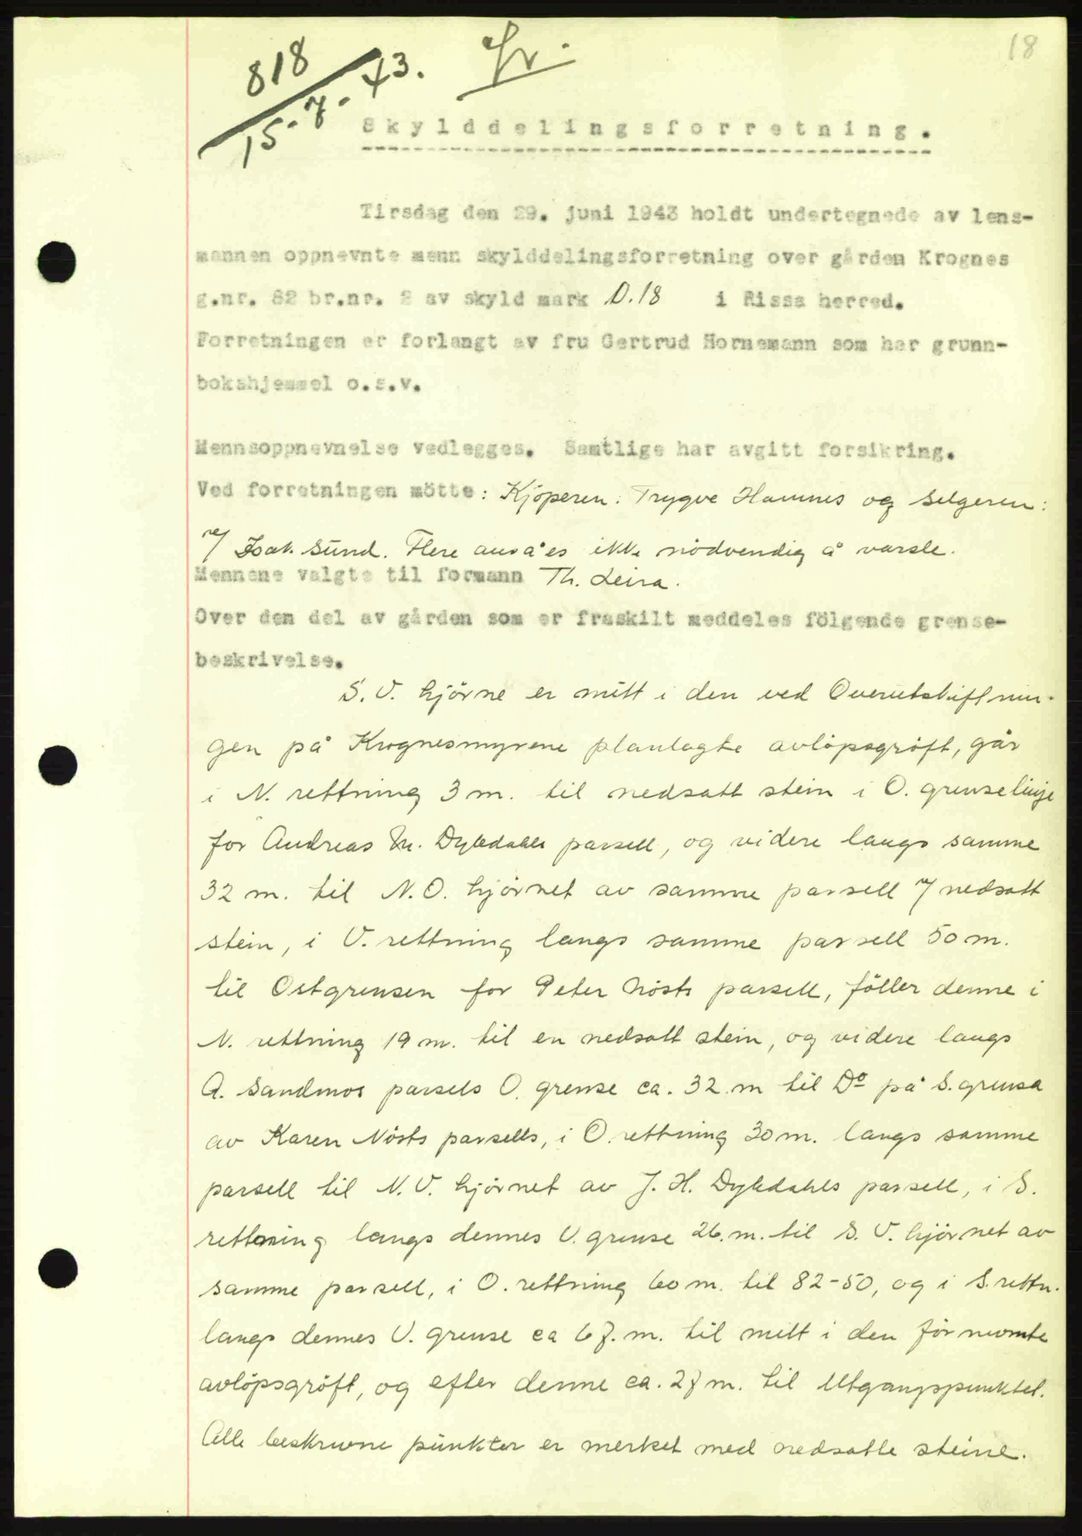 18
818
15-7-43.
Skylddelingsforretning.
Tirsdag den 29. juni 1943 holdt undertegnede av lens-
mannen oppnevnte menn skylddelingsforretning over gården Krognes
g.nr. 82 br.nr. 2 av skyld mark 0.18 i Rissa herred.
Forretningen er forlangt av fru Gertrud Hornemann som har grunn-
bokshjemmel o.s.v.
Mennsoppnevnelse vedlegges. Samtlige har avgitt forsikring.
Ved forretningen mötte: Kjöperen: Trygve Hamnes og Selgeren:
v/ Isak Sund. Flere ansåes ikke nödvendig å varsle.
Mennene valgte til formann Th. Leira.
Over den del av gården som er fraskilt meddeles fölgende grense-
beskrivelse.
S.V. hjörne er mitt i den ved Overutskiftnin-
gen på Krognesmyrene planlagte avlöpsgröft, går
i N. rettning 3 m. til nedsatt stein i O. grenselinje
for Andreas M. Dybdahls parsell, og videre langs samme
32 m. til N.O. hjörnet av samme parsell v/ nedsatt
stein, i V. rettning langs samme parsell 50 m.
til Östgrensen for Peter Nösts parsell, föller denne i
N. rettning 19 m. til en nedsatt stein, og videre langs
A. Sandmos parsels O. grense ca. 32 m til Do på S. grensa
av Karen Nösts parsells, i O. rettning 30 m. langs samme
parsell til N.V. hjörnet av J.H. Dybdahls parsell, i S.
rettning langs dennes V. grense 26. m. til S.V. hjörnet av
samme parsell, i O. rettning 60 m. til 82-50, og i S. rettn.
langs dennes V. grense ca 67. m. til mitt i den för nevnte
avlöpsgröft, og efter denne ca. 27 m. til Utgangspunktet.
Alle beskrevne punkter er merket med nedsatte steine.